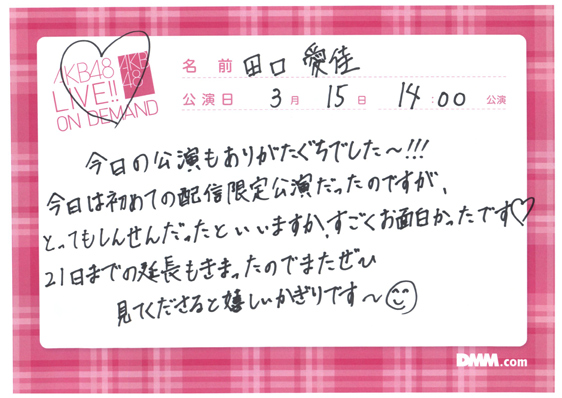 AKB48
LIVE!!
ON DEMAND
AKB
48
名前 田口 愛佳
公演日 3月 15日 14:00 公演
今日の公演もありがたぐちでした〜!!!
今日は初めての配信限定公演だったのですが、
とってもしんせんだったといいますか、すごくお面白かったです♡
21日までの延長もきまったのでまたぜひ
見てくださると嬉しいかぎりです〜
DMM.com